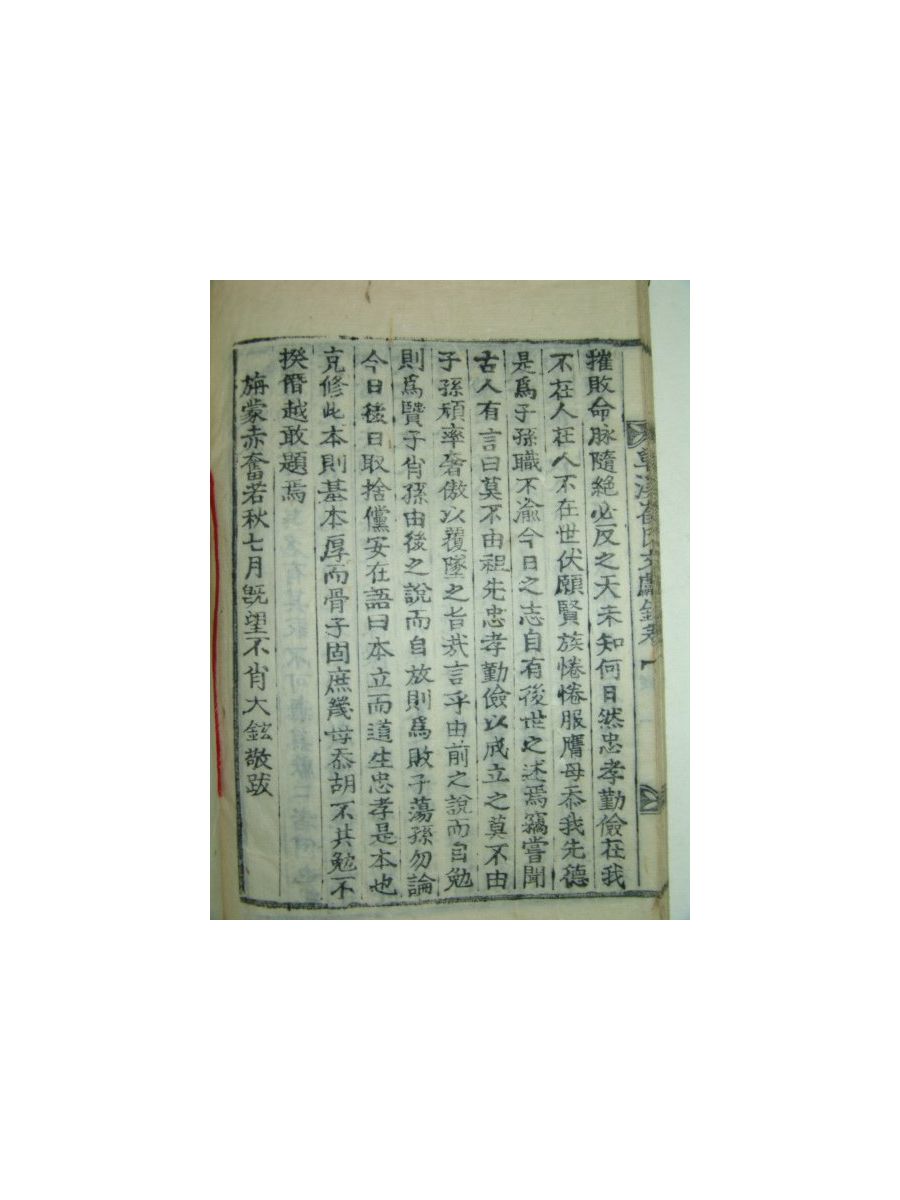 摧敗命脉隨絶必反之天未知何日然忠孝勤儉在我
不在人在人不在世伏願賢族惓惓服膺毋忝我先德
是爲子孫職不渝今日之志自有後世之述焉竊嘗聞
古人有言曰莫不由祖先忠孝勤儉以成立之莫不由
子孫頑率奢傲以覆墜之旨哉言乎由前之說而自勉
則爲賢子肖孫由後之說而自放則爲敗子蕩孫勿論
今日後日取捨儻安在語曰本立而道生忠孝是本也
克修此本則基本厚而骨子固庶幾毋忝胡不共勉不
揆僭越敢題焉
旃蒙赤奮若秋七月旣望不肖大鉉敬跋
氏文獻錄卷